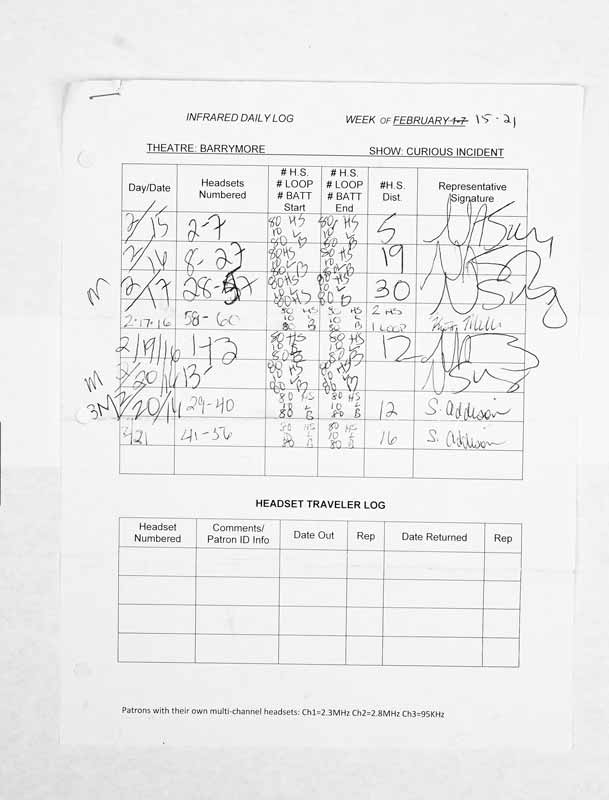 INFRARED DAILY LOG WEEK OF FEBRUARY 1-7 15-21
THEATRE: BARRYMORE SHOW: CURIOUS INCIDENT
Day/Date Headsets Numbered # H.S. # LOOP # BATT Start # H.S. # LOOP # BATT End #H.S. Dist. Representative Signature
2/15 2-7 80 HS 10 L 80 B 80 HS 10 L 80 B 5
2/16 8-27 80 HS 10 L 80 B 80 HS 10 L 80 B 19
M 2/17 28-57 80 HS 10 L 80 B 80 HS 10 L 80 B 30
2-17-16 58-60 80 HS 10 L 80 B 80 HS 10 L 80 B 2 HS 1 LOOP
2/19/16 1-13 80 HS 10 L 80 B 80 HS 10 L 80 B 12
M 2/20/16 13- 80 HS 10 L 80 B 80 HS 10 L 80 B
3M 2/20/16 29-40 80 HS 10 L 80 B 80 HS 10 L 80 B 12 S. Addison
41-56 80 HS 10 L 80 B 80 HS 10 L 80 B 16 S. Addison
HEADSET TRAVELER LOG
Headset Numbered Comments/ Patron ID Info Date Out Rep Date Returned Rep
Patrons with their own multi-channel headsets: Ch1=2.3MHz Ch2=2.8MHz Ch3=95KHz